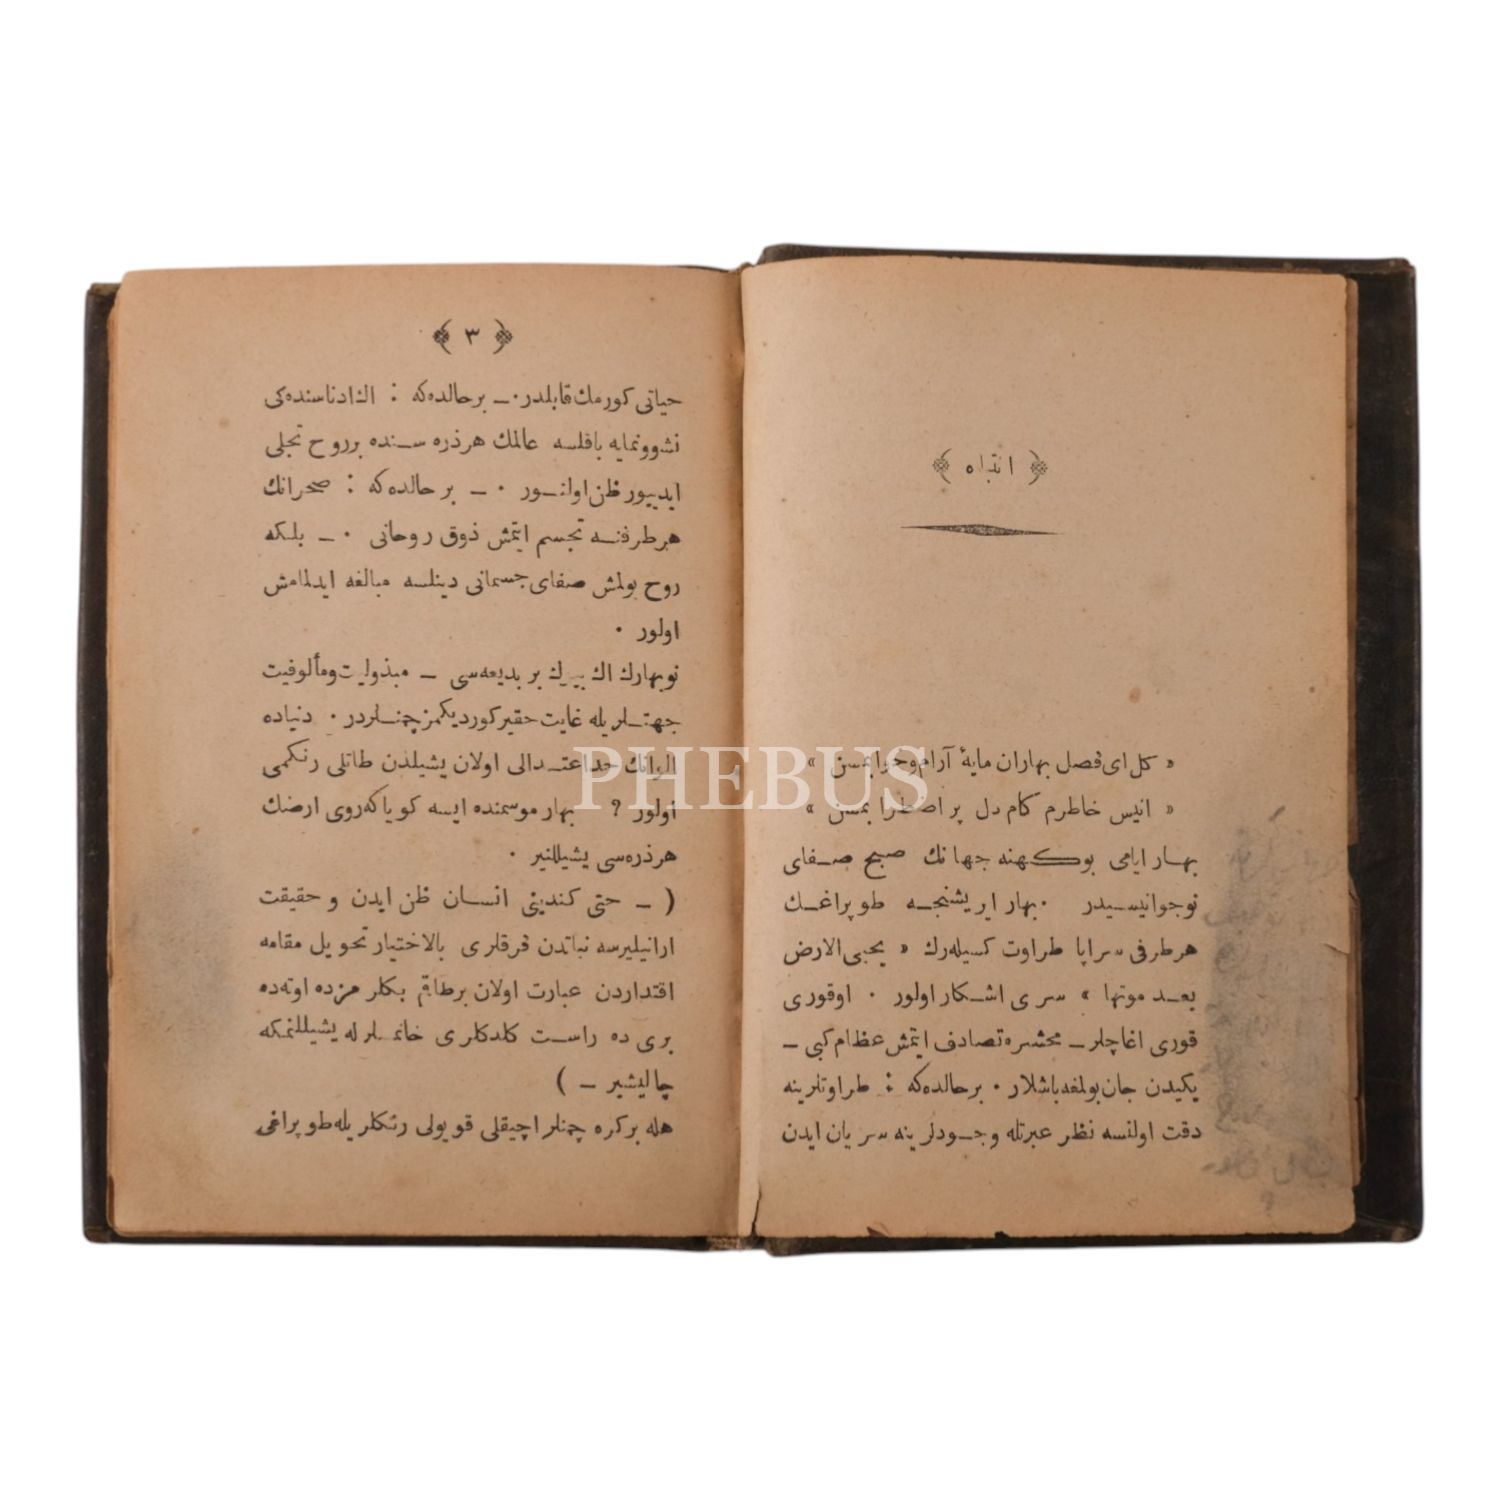 ﴿ انتباه ﴾
« كل ای فصل بهاران مایهٔ آرام وخوابمسن »
« انیس خاطرم كام دل پر اضطرابمسن »
بهار ایامی بوكهنه جهانك صبح صفای
نوجوانیسیدر ۰ بهار ایریشنجه طوپراغك
هر طرفی سراپا طراوت كسیله رك « یحیی الارض
بعد موتها » سری اشكار اولور ۰ اوقوری
قوری اغاچلر ــ محشره تصادف ایتمش عظام كبی ــ
یكیدن جان بولمغه باشلار ۰ برحالده كه : طراوتلرینه
دقت اولنسه نظر عبرتله وجودلرینه سریان ایدن
﴿ ٣ ﴾
حیاتی كورمك قابلدر ۰ ــ برحالده كه : اك ادناسنده كی
نشوونمایه باقلسه عالمك هرذره سنده برروح تجلی
ایدییور ظن اولنور ۰ ــ برحالده كه : صحرانك
هرطرفنه تجسم ایتمش ذوق روحانی ۰ ــ بلكه
روح بولمش صفای جسمانی دینلسه مبالغه ایدلمامش
اولور ۰
نوبهارك اك بیوك بر بدیعه سی ــ مبذولیت ومألوفیت
جهتلریله غایت حقیر كوردیكمز چمنلردر ۰ دنیاده
الوانك حداعتدالی اولان یشیلدن طاتلی رنكمی
اولور ؟ بهار موسمنده ایسه كویا كه روی ارضك
هرذره سی یشیللنیر ۰
( ــ حتی كندینی انسان ظن ایدن و حقیقت
ارانیلیرسه نباتدن فرقلری بالاختیار تحویل مقامه
اقتداردن عبارت اولان برطاقم بكلر مزده اوته ده
بری ده راست كلدكلری خانملرله یشیللنمكه
چالیشیر ــ )
هله بركره چمنلر اچیقلی قویولی رنكلریله طوپراغی
PHEBUS